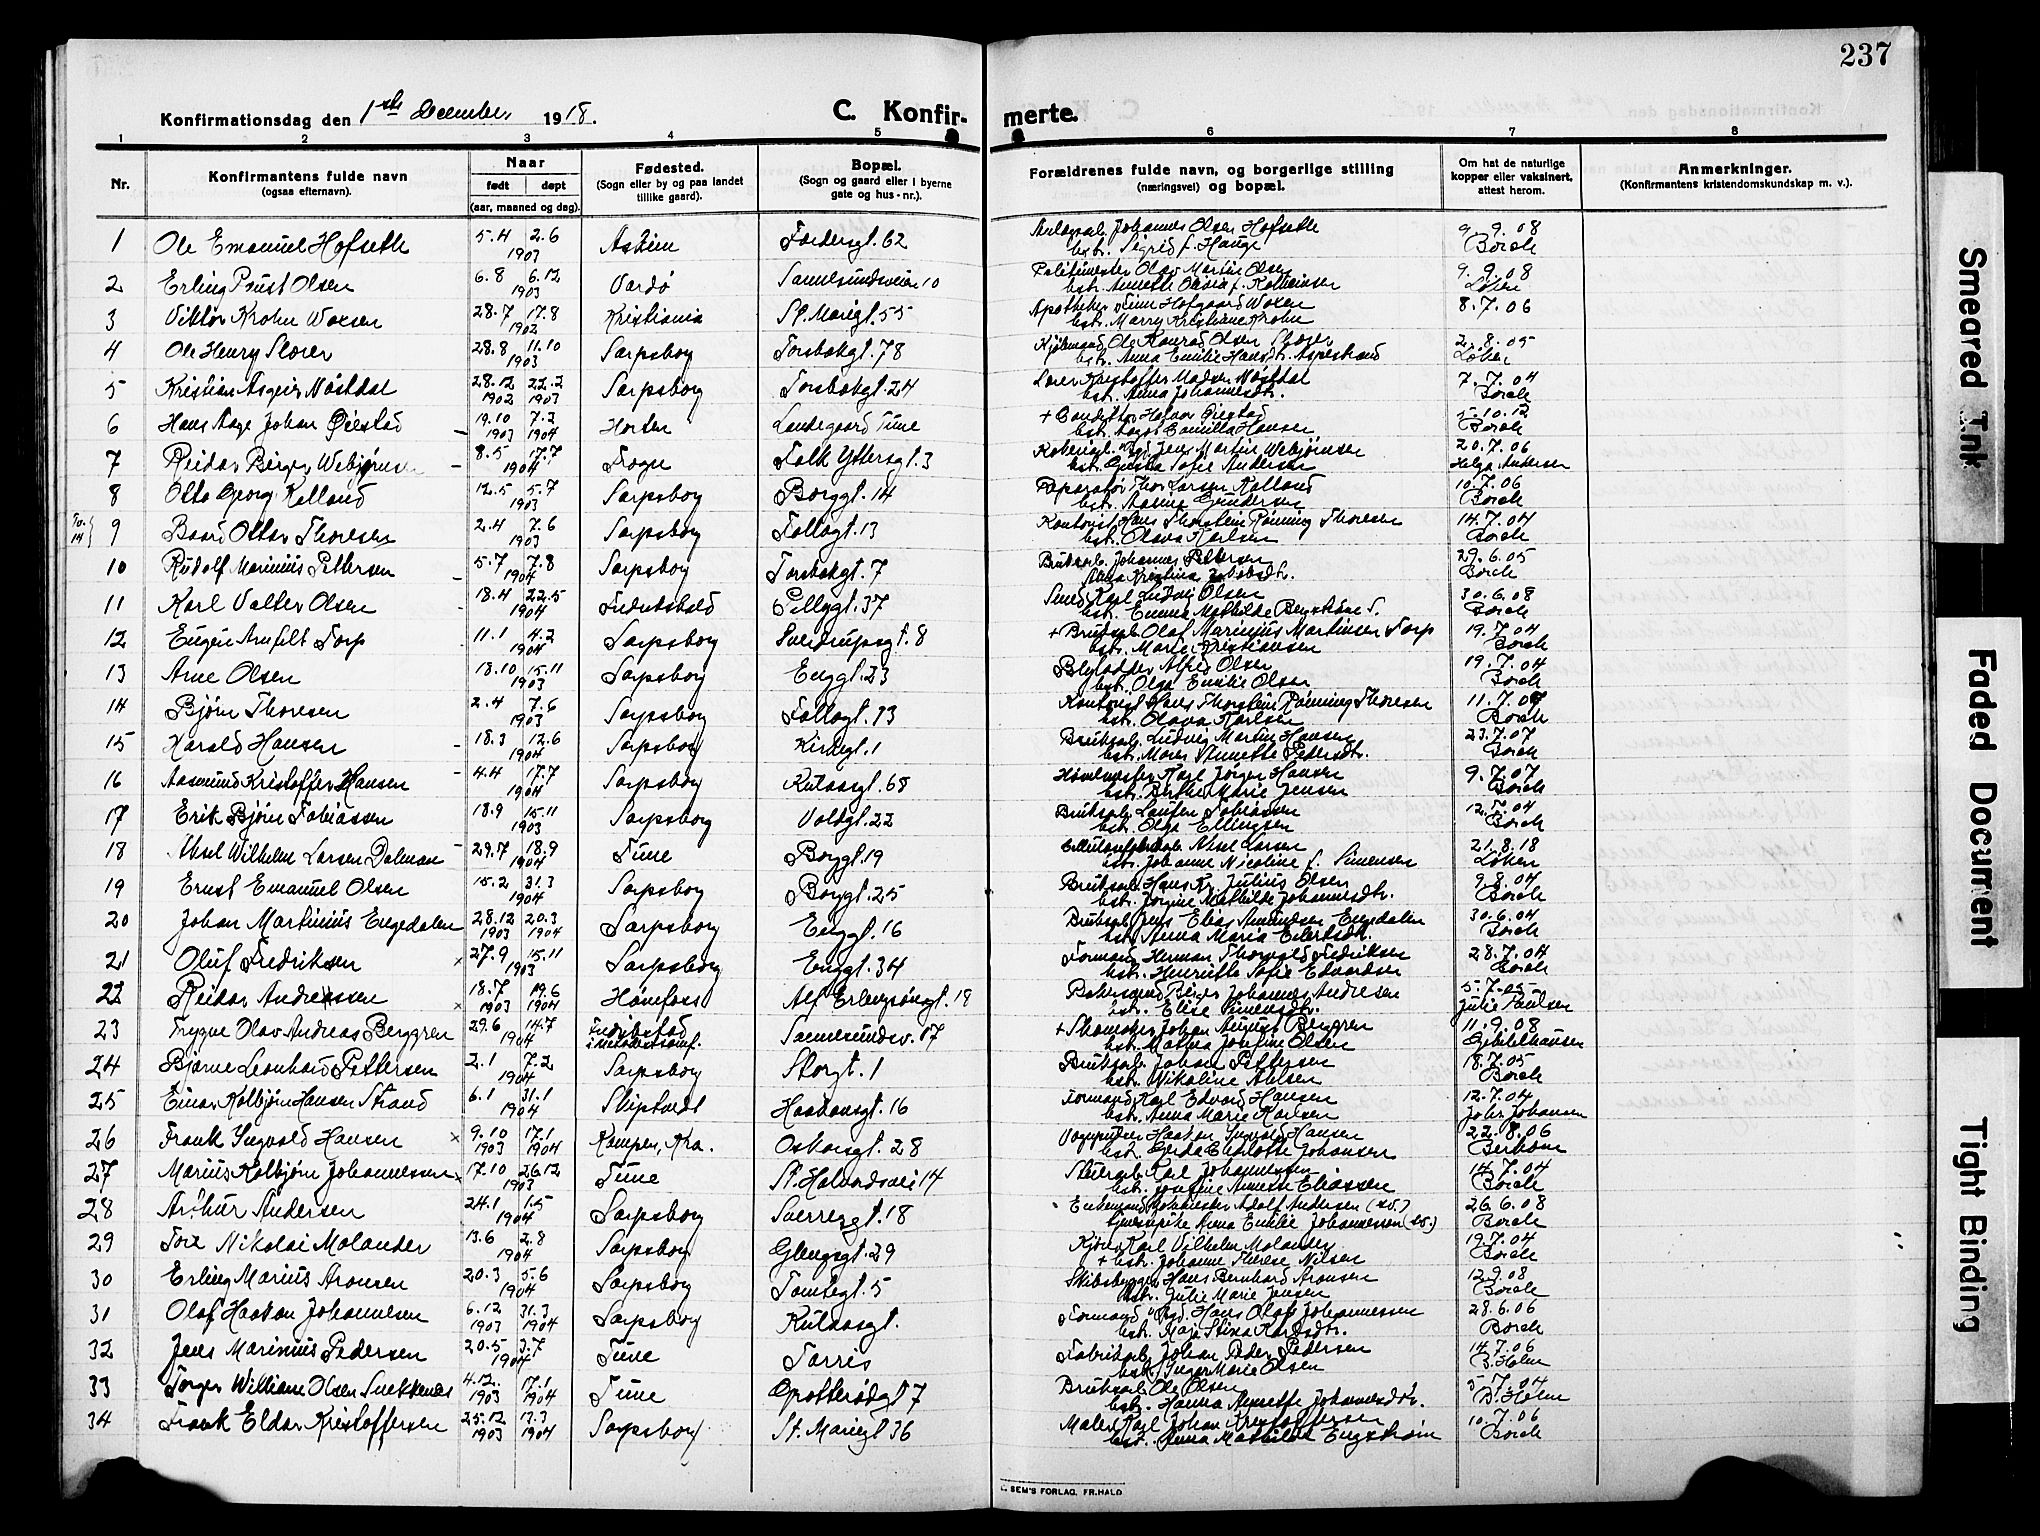 237
Konfirmationsdag den 1ste December 1918.
C. Konfirmerte.
1 2 3 4 5 6 7 8
Nr.
Konfirmantens fulde navn
(ogsaa efternavn).
Naar
født døpt
(aar, maaned og dag).
Fødested.
(Sogn eller by og paa landet
tillike gaard).
Bopæl.
(Sogn og gaard eller i byerne
gate og hus-nr.).
Forældrenes fulde navn, og borgerlige stilling
(næringsvei) og bopæl.
Om hat de naturlige
kopper eller vaksinert,
attest herom.
Anmerkninger.
(Konfirmantens kristendomskundskap m. v.).
1 Ole Emanuel Hofseth 5.4 2.6 1903 Askim 62 Johannes Olsen Hofseth 9.9.08
bstr. Sigrid f. Hauge Borch
2 Erling Olsen 6.8 6.12 1903 Vardø Sannesundsveien 10 Politimester Olav Martin Olsen 9.9.08
bstr. Annette f. Løken
3 Viktor Krohn Woxen 28.7 17.8 1902 Kristiania St. Mariegt. 55 Apotheker Hofgaard Woxen 8.7.06
bstr. Marry Kristiane Krohn
4 Ole Henry 28.8 11.10 1903 Sarpsborg Torsbekgt. 78 Ole Konrad Olsen 2.8.05
bstr. Anna Emilie Hansdtr. Løken
5 Kristian Asgeir Nøstdal 28.12 1902 22.2 1903 Sarpsborg Torsbekgt. 24 Kristoffer Madsen Nøstdal 7.7.04
bstr. Anna Johannesdtr. Borch
6 Hans Aage Johan Øiestad 19.10 1903 7.2 1904 Horten Tune + Conditor Øiestad 5.10.12
bstr. Camilla Hansen Borch
7 Reidar Birger Webjørnsen 8.5 17.7 1904 Folk Yttersgt. 3 Jens Martin Webjørnsen 20.7.06
bstr. Sofie Andersen Helga Andersen
8 Otto Georg Kolland 12.5 5.7 1903 Sarpsborg Borggt. 14 Thor Larsen Kolland 10.7.06
bstr. Gundersen Borch
9 Baard Ottar Thoresen 2.4 7.6 1903 Sarpsborg Follogt. 13 Kontorist Hans Thorstein Rønning Thoresen 14.7.04
bstr. Olava Karlsen Borch
10 Rudolf Marinius Pettersen 5.7 7.8 1904 Sarpsborg Torsbekgt. 7 Bruksarb. Johannes Pettersen 29.6.05
Anna Kristina Jakobsdtr. Borch
11 Karl Valter Olsen 18.4 22.5 1904 Fredrikshald 37 Smed Karl Ludvig Olsen 30.6.08
bstr. Emma Mathilde Borch
12 Eugen Arnfelt Torp 11.1 4.2 1904 Sarpsborg Sverdrupsgt. 8 + Bruksarb. Olaf Marinius Martinsen Torp 19.7.04
bstr. Marie Kristiansen Borch
13 Arne Olsen 18.10 15.11 1903 Sarpsborg Enggt. 23 Alfred Olsen 19.7.04
bstr. Olga Emilie Olsen Borch
14 Bjørn Thoresen 2.4 7.6 1903 Sarpsborg Follogt. 13 Kontorist Hans Thorstein Rønning Thoresen 11.7.07
bstr. Olava Karlsen Borch
15 Harald Hansen 18.3 12.6 1904 Sarpsborg Kirkegt. 1 Bruksarb. Ludvig Martin Hansen 23.7.07
bstr. Annette Pedersdtr. Borch
16 Aasmund Kristoffer Hansen 4.4 17.7 1904 Sarpsborg Kulaasgt. 68 Høvlemester Karl Jørgen Hansen 9.7.07
bstr. Berthe Marie Jensen Borch
17 Erik Bjørn Tobiassen 18.9 15.11 1903 Sarpsborg Voldgt. 22 Bruksarb. Tobiassen 12.7.04
bstr. Olga Ellingsen Borch
18 Aksel Wilhelm Larsen Dalmann 29.7 18.9 1904 Tune Borggt. 19 Aksel Larsen 21.8.18
bstr. Johanne Nicoline f. Simensen Løken
19 Ernst Emanuel Olsen 15.2 31.3 1904 Sarpsborg Borggt. 25 Bruksarb. Hans Kr. Julius Olsen 9.8.04
bstr. Jørgine Mathilde Johannesdtr. Borch
20 Johan Martinius Engedalen 28.12 1903 20.3 1904 Sarpsborg Enggt. 16 Bruksarb. Jens Elias Amundsen Engedalen 30.6.04
bstr. Anna Maria Eilertsdtr. Borch
21 Oluf Fredriksen × 27.9 15.11 1903 Sarpsborg Enggt. 34 Formand Herman Thorvald Fredriksen 28.7.04
bstr. Henriette Sofie Edvardsen Borch
22 Reidar Andreassen × 18.7 1903 19.6 1904 Hønefoss Alf Erlingsønsgt. 18 Birger Johannes Andresen 5.7.05
bstr. Elise Simensdtr. Julie Paulsen
23 Trygve Olav Andreas Berggren 29.6 14.7 1904 Fredrikstad i metodistsamf. Sannesundsv. 17 + Skomaker Johan August Berggren 11.9.08
bstr. Mathea Josefine Olsen Gjibilhausen
24 Bjarne Leonhard Pettersen 2.1 7.2 1904 Sarpsborg Storgt. 1 Bruksarb. Johan Pettersen 18.7.05
bstr. Nikoline Ahlsen Borch
25 Einar Kolbjørn Hansen Strand 6.1 31.1 1904 Skiptvedt Haakonsgt. 16 Formand Karl Edvard Hansen 12.7.04
bstr. Anna Marie Karlsen Johs. Johansen
26 Frank Ingvald Hansen × 9.10 1903 17.1 1904 Kampen, Kra. Oskarsgt. 28 Haakon Ingvald Hansen 22.8.06
bstr. Gerda Charlotte Johansen
27 Marius Kolbjørn Johannessen × 17.10 26.12 1903 Tune St. Halvardsvei 14 Karl Johannessen 14.7.04
bstr. Josefine Annette Eliassen Borch
28 Arthur Andersen 24.1 1.5 1904 Sarpsborg Sverresgt. 18 Enkemand Adolf Andersen (sv.) 26.6.08
tjenestepike Anna Emilie Johannessen (sv.) Borch
29 Tore Nikolai Molander 13.6 2.8 1904 Sarpsborg Glengsgt. 29 Karl Vilhelm Molander 19.7.04
+ bstr. Johanne Therese Nilsen Borch
30 Erling Marius Aronsen 20.3 5.6 1904 Sarpsborg Tomtegt. 5 Skibsbygger Hans Bernhard Aronsen 12.9.08
bstr. Julie Marie Jensen Borch
31 Olaf Haakon Johannesen 6.12 1903 31.3 1904 Sarpsborg Kulaasgt. Formand Hans Olaf Johannessen 28.6.06
bstr. Maja Stina Karlsdtr. Borch
32 Jens Marinius Pedersen 20.5 3.7 1904 Tune Torris Fabrikarb. Johan Peder Pedersen 14.7.06
bstr. Inger Marie Olsen B. Holm
33 Torger William Olsen Snekkenes 4.12 1903 17.1 1904 Tune Opstterødgt 7 Bruksarb. Ole Olsen 5.7.04
bstr. Hanna Annette Johannesdtr. B. Holm
34 Frank Eldar Kristoffersen 25.12 1903 13.3 1904 Sarpsborg St. Mariegt 36 Maler Karl Johan Kristoffersen 10.7.06
bstr. Anna Mathilde Engstrøm Borch
SEM'S FORLAG, FR.HALD
Smeared Ink
Faded Document
Tight Binding